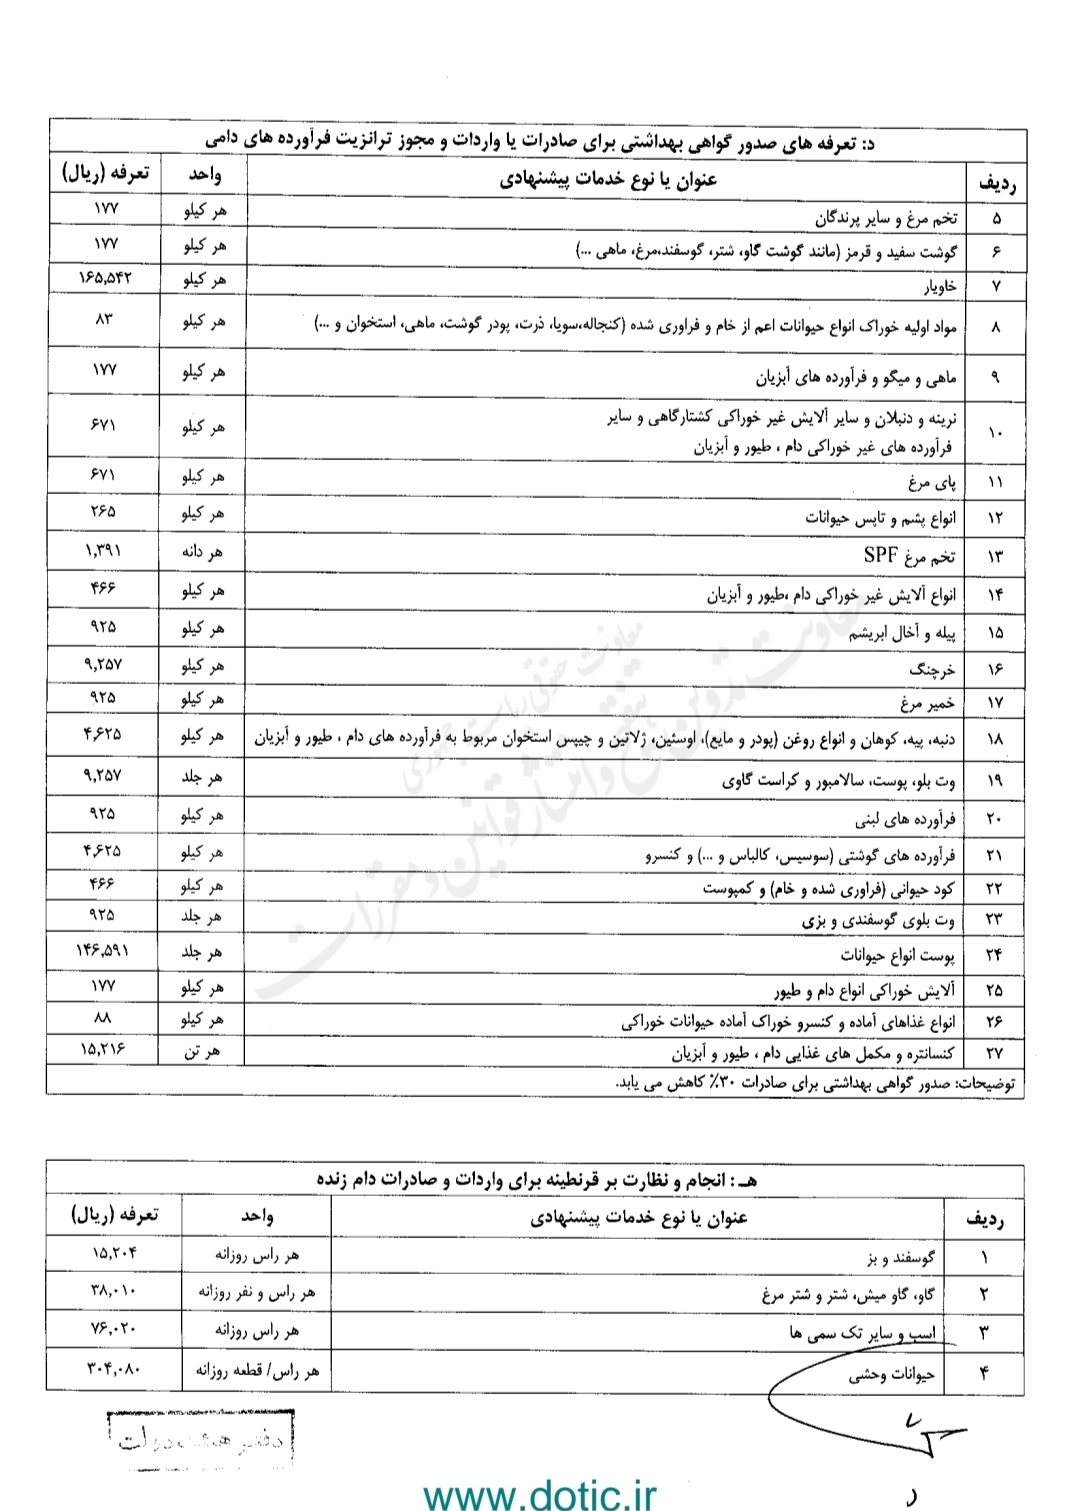 د: تعرفه های صدور گواهی بهداشتی برای صادرات یا واردات و مجوز ترانزیت فرآورده های دامی
ردیف عنوان یا نوع خدمات پیشنهادی واحد تعرفه (ریال)
۵ تخم مرغ و سایر پرندگان هر کیلو ۱۷۷
۶ گوشت سفید و قرمز (مانند گوشت گاو، شتر، گوسفند،مرغ، ماهی ...) هر کیلو ۱۷۷
۷ خاویار هر کیلو ۱۶۵,۵۴۲
۸ مواد اولیه خوراک انواع حیوانات اعم از خام و فراوری شده (کنجاله،سویا، ذرت، پودر گوشت، ماهی، استخوان و ...) هر کیلو ۸۳
۹ ماهی و میگو و فرآورده های آبزیان هر کیلو ۱۷۷
۱۰ نرینه و دنبلان و سایر آلایش غیر خوراکی کشتارگاهی و سایر
فرآورده های غیر خوراکی دام ، طیور و آبزیان هر کیلو ۶۷۱
۱۱ پای مرغ هر کیلو ۶۷۱
۱۲ انواع پشم و تاپس حیوانات هر کیلو ۲۶۵
۱۳ تخم مرغ SPF هر دانه ۱,۳۹۱
۱۴ انواع آلایش غیر خوراکی دام ،طیور و آبزیان هر کیلو ۴۶۶
۱۵ پیله و آخال ابریشم هر کیلو ۹۲۵
۱۶ خرچنگ هر کیلو ۹,۲۵۷
۱۷ خمیر مرغ هر کیلو ۹۲۵
۱۸ دنبه، پیه، کوهان و انواع روغن (پودر و مایع)، اوسئین، ژلاتین و چیپس استخوان مربوط به فرآورده های دام ، طیور و آبزیان هر کیلو ۴,۶۲۵
۱۹ وت بلو، پوست، سالامبور و کراست گاوی هر جلد ۹,۲۵۷
۲۰ فرآورده های لبنی هر کیلو ۹۲۵
۲۱ فرآورده های گوشتی (سوسیس، کالباس و ...) و کنسرو هر کیلو ۴,۶۲۵
۲۲ کود حیوانی (فراوری شده و خام) و کمپوست هر کیلو ۴۶۶
۲۳ وت بلوی گوسفندی و بزی هر جلد ۹۲۵
۲۴ پوست انواع حیوانات هر جلد ۱۴۶,۵۹۱
۲۵ آلایش خوراکی انواع دام و طیور هر کیلو ۱۷۷
۲۶ انواع غذاهای آماده و کنسرو خوراک آماده حیوانات خوراکی هر کیلو ۸۸
۲۷ کنسانتره و مکمل های غذایی دام ، طیور و آبزیان هر تن ۱۵,۲۱۶
توضیحات: صدور گواهی بهداشتی برای صادرات ۳۰٪ کاهش می یابد.
معاونت حقوقی ریاست جمهوری
معاونت تدوین، تنقیح و انتشار قوانین و مقررات
هـ : انجام و نظارت بر قرنطینه برای واردات و صادرات دام زنده
ردیف عنوان یا نوع خدمات پیشنهادی واحد تعرفه (ریال)
۱ گوسفند و بز هر راس روزانه ۱۵,۲۰۴
۲ گاو، گاو میش، شتر و شتر مرغ هر راس و نفر روزانه ۳۸,۰۱۰
۳ اسب و سایر تک سمی ها هر راس روزانه ۷۶,۰۲۰
۴ حیوانات وحشی هر راس/ قطعه روزانه ۳۰۴,۰۸۰
دفتر هیئت دولت
www.dotic.ir